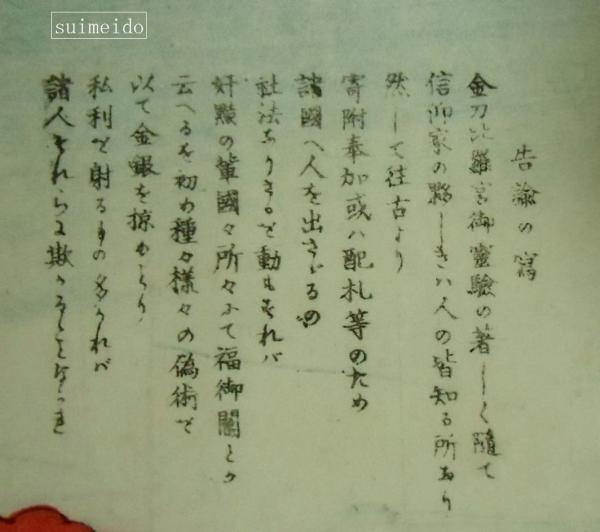 suimeido
告諭の寫
金刀比羅宮御靈驗の著しく隨て
信仰家の夥しきハ人の皆知る所あり
然して往古より
寄附奉加或ハ配札等のため
諸國へ人を出さゞるの
社法なりきるを動もすれバ
奸黠の輩國々所々にて福御鬮とか
云へるを初め種々様々の偽術を
以て金銀を掠めとり
私利を射るもの多かれバ
諸人それらに欺かるゝことなかれ